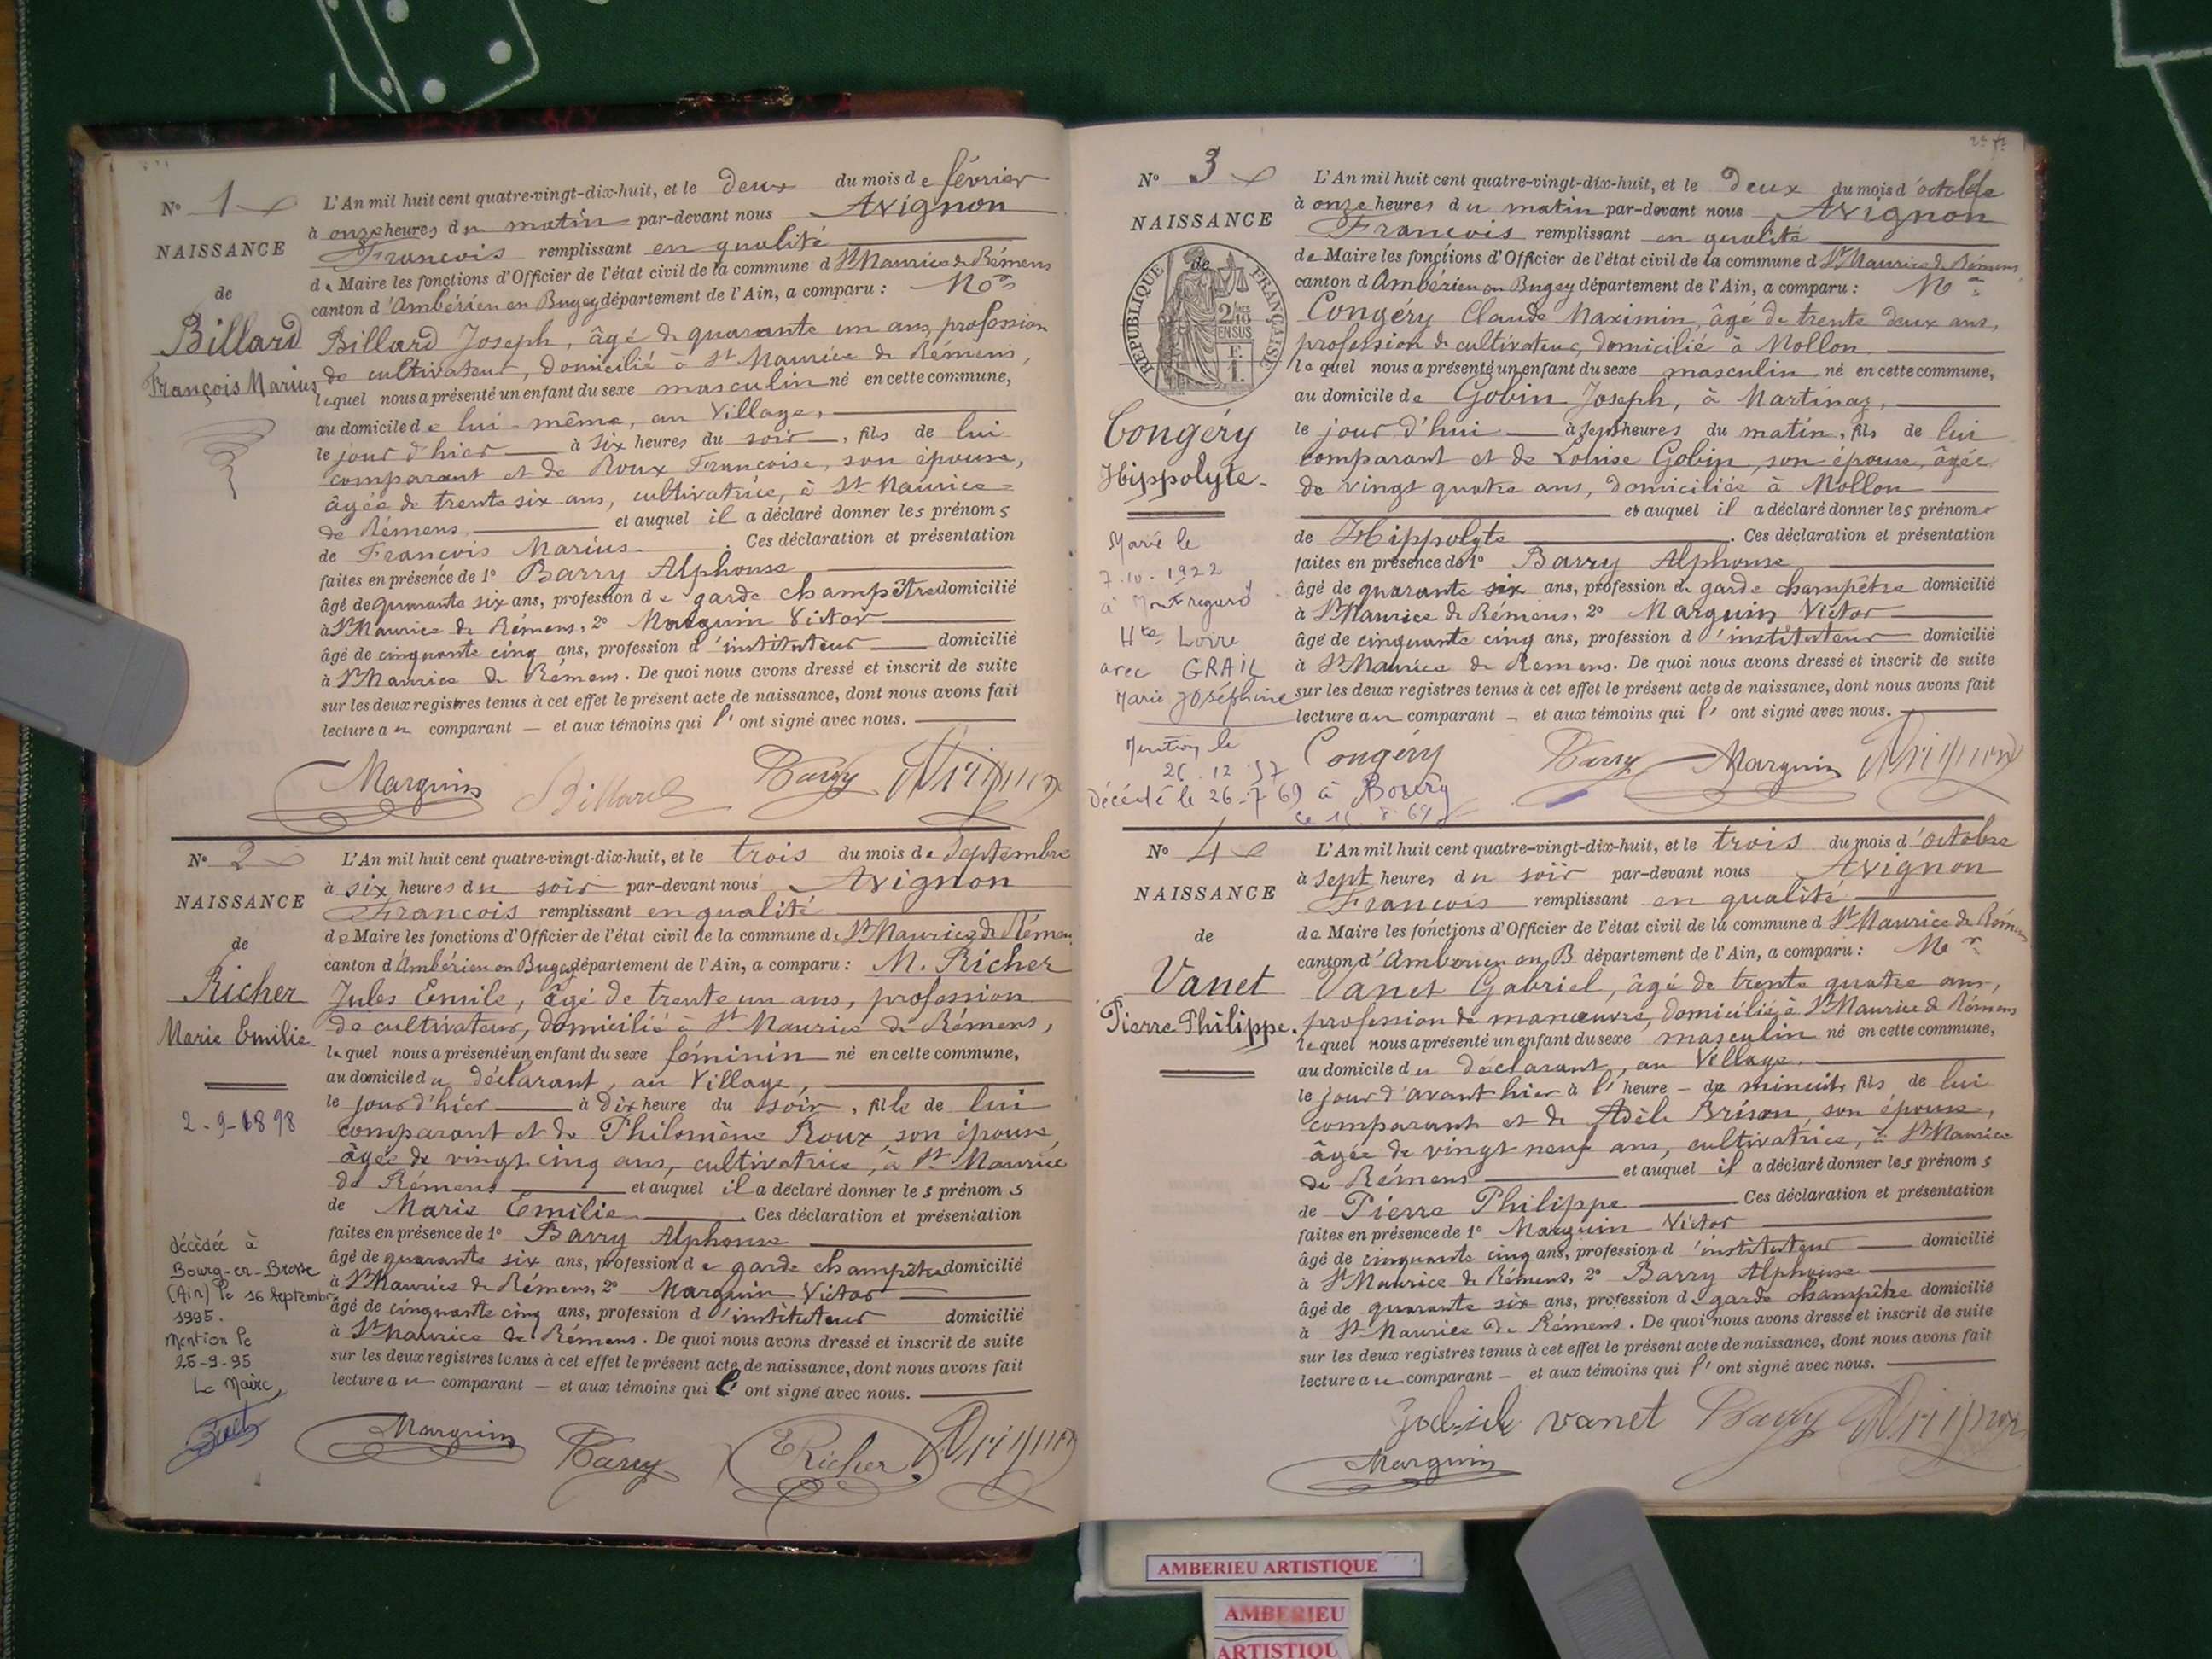 N° 1
NAISSANCE
de
Billard
François Marius
L'An mil huit cent quatre-vingt-dix-huit, et le deux du mois de février
à onze heures du matin par-devant nous Avignon
François remplissant en qualité
de Maire les fonctions d'Officier de l'état civil de la commune d St Maurice de Rémens
canton d'Ambérieu en Bugey département de l'Ain, a comparu : Mor
Billard Joseph, âgé de quarante un ans, profession
de cultivateur, domicilié à St Maurice de Rémens,
lequel nous a présenté un enfant du sexe masculin né en cette commune,
au domicile de lui-même, au Village,
le jour d'hier à six heures du soir, fils de lui
comparant et de Roux Françoise, son épouse,
âgée de trente six ans, cultivatrice, à St Maurice=
de Rémens et auquel il a déclaré donner les prénoms
de François Marius. Ces déclaration et présentation
faites en présence de 1° Barry Alphonse
âgé de quarante six ans, profession de garde champêtre domicilié
à St Maurice de Rémens, 2° Marguin Victor
âgé de cinquante cinq ans, profession d'instituteur domicilié
à St Maurice de Rémens. De quoi nous avons dressé et inscrit de suite
sur les deux registres tenus à cet effet le présent acte de naissance, dont nous avons fait
lecture au comparant — et aux témoins qui l'ont signé avec nous.
Marguin Billard Barry Avignon
N° 2
NAISSANCE
de
Richer
Marie Emilie
2-9-1898
décédée à
Bourg-en-Bresse
(Ain) le 16 Septembre
1995.
Mention le
25-9-95
Le Maire,
L'An mil huit cent quatre-vingt-dix-huit, et le trois du mois de Septembre
à six heures du soir par-devant nous Avignon
François remplissant en qualité
de Maire les fonctions d'Officier de l'état civil de la commune de St Maurice de Rémens
canton d'Ambérieu en Bugey département de l'Ain, a comparu : M. Richer
Jules Emile, âgé de trente un ans, profession
de cultivateur, domicilié à St Maurice de Rémens,
lequel nous a présenté un enfant du sexe féminin né en cette commune,
au domicile du déclarant, au Village,
le jour d'hier à dix heure du soir, fille de lui
comparant et de Philomène Roux son épouse,
âgée de vingt-cinq ans, cultivatrice, à St Maurice
de Rémens et auquel il a déclaré donner les prénoms
de Marie Emilie Ces déclaration et présentation
faites en présence de 1° Barry Alphonse
âgé de quarante six ans, profession de garde champêtre domicilié
à St Maurice de Rémens, 2° Marguin Victor
âgé de cinquante cinq ans, profession d'instituteur domicilié
à St Maurice de Rémens. De quoi nous avons dressé et inscrit de suite
sur les deux registres tenus à cet effet le présent acte de naissance, dont nous avons fait
lecture au comparant — et aux témoins qui l'ont signé avec nous.
Marguin Barry E Richer Avignon
N° 3
NAISSANCE
de
RÉPUBLIQUE FRANÇAISE
Congéry
Hippolyte
Marié le
7.10.1922
à Montregard
Hte Loire
avec GRAIL
Marie Joséphine
Mention le
26.12.57
décédé le 26-7 69 à Bourg
L'An mil huit cent quatre-vingt-dix-huit, et le deux du mois d'octobre
à onze heures du matin par-devant nous Avignon
François remplissant en qualité
de Maire les fonctions d'Officier de l'état civil de la commune d St Maurice de Rémens
canton d'Ambérieu en Bugey département de l'Ain, a comparu : Mr
Congéry Claude Maximin, âgé de trente deux ans,
profession de cultivateur, domicilié à Mollon
lequel nous a présenté un enfant du sexe masculin né en cette commune,
au domicile de Gobin Joseph, à Martinaz,
le jour d'hui à sept heures du matin, fils de lui
comparant et de Louise Gobin, son épouse, âgée
de vingt quatre ans, domiciliée à Mollon
et auquel il a déclaré donner les prénom
de Hippolyte. Ces déclaration et présentation
faites en présence de 1° Barry Alphonse
âgé de quarante six ans, profession de garde champêtre domicilié
à St Maurice de Rémens, 2° Marguin Victor
âgé de cinquante cinq ans, profession d'instituteur domicilié
à St Maurice de Rémens. De quoi nous avons dressé et inscrit de suite
sur les deux registres tenus à cet effet le présent acte de naissance, dont nous avons fait
lecture au comparant — et aux témoins qui l'ont signé avec nous.
Congéry Barry Marguin Avignon
N° 4
NAISSANCE
de
Vanet
Pierre Philippe.
L'An mil huit cent quatre-vingt-dix-huit, et le trois du mois d'octobre
à sept heures du soir par-devant nous Avignon
François remplissant en qualité
de Maire les fonctions d'Officier de l'état civil de la commune d St Maurice de Rémens
canton d'Ambérieu en B département de l'Ain, a comparu : Mr
Vanet Gabriel, âgé de trente quatre ans,
profession de manœuvre, domicilié à St Maurice de Rémens
lequel nous a présenté un enfant du sexe masculin né en cette commune,
au domicile du déclarant, au Village.
le jour d'avant hier à l'heure — de minuit, fils de lui
comparant et de Adèle Brison, son épouse,
âgée de vingt neuf ans, cultivatrice, à St Maurice
de Rémens et auquel il a déclaré donner les prénoms
de Pierre Philippe Ces déclaration et présentation
faites en présence de 1° Marguin Victor
âgé de cinquante cinq ans, profession d'instituteur domicilié
à St Maurice de Rémens, 2° Barry Alphonse
âgé de quarante six ans, profession de garde champêtre domicilié
à St Maurice de Rémens. De quoi nous avons dressé et inscrit de suite
sur les deux registres tenus à cet effet le présent acte de naissance, dont nous avons fait
lecture au comparant — et aux témoins qui l'ont signé avec nous.
Gabriel vanet Barry Avignon
Marguin
AMBERIEU ARTISTIQUE
AMBERIEU
ARTISTIQU